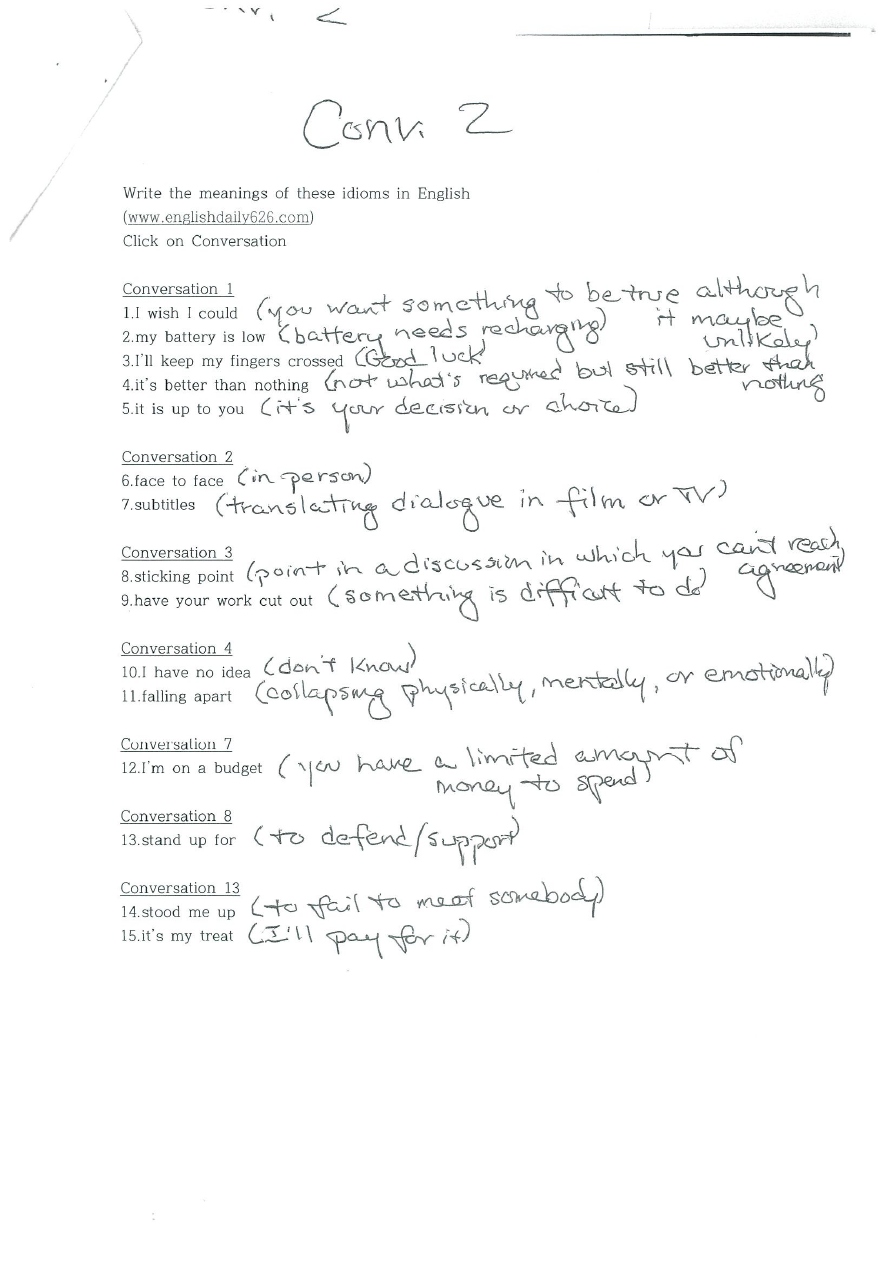 Conv. 2
Write the meanings of these idioms in English
(www.englishdaily626.com)
Click on Conversation
Conversation 1
1.I wish I could (you want something to be true although it maybe unlikely)
2.my battery is low (battery needs recharging)
3.I'll keep my fingers crossed (Good luck)
4.it's better than nothing (not what's required but still better than nothing
5.it is up to you (it's your decision or choice)
Conversation 2
6.face to face (in person)
7.subtitles (translating dialogue in film or TV)
Conversation 3
8.sticking point (point in a discussion in which you can't reach agreement)
9.have your work cut out (something is difficult to do)
Conversation 4
10.I have no idea (don't know)
11.falling apart (collapsing physically, mentally, or emotionally)
Conversation 7
12.I'm on a budget (you have a limited amount of
money to spend)
Conversation 8
13.stand up for (to defend/support)
Conversation 13
14.stood me up (to fail to meet somebody)
15.it's my treat (I'll pay for it)